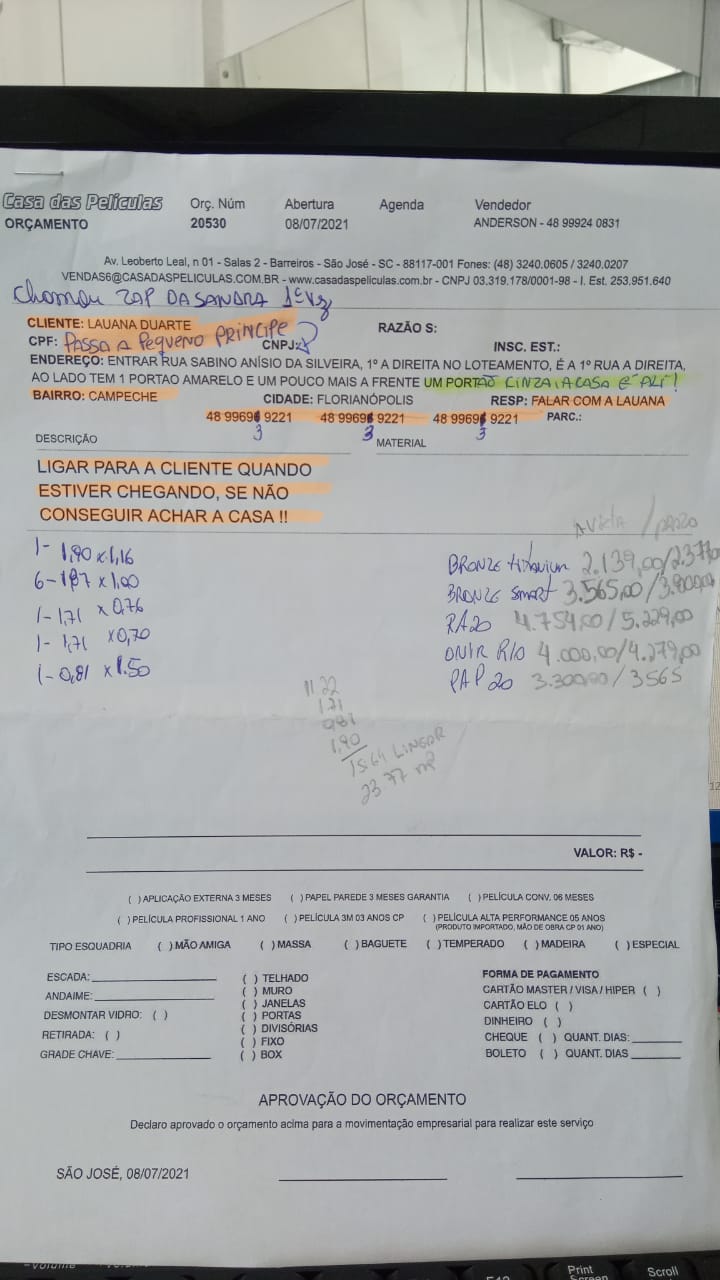 Casa das Películas Orç. Núm Abertura Agenda Vendedor
ORÇAMENTO 20530 08/07/2021 ANDERSON - 48 99924 0831
Av. Leoberto Leal, n 01 - Salas 2 - Barreiros - São José - SC - 88117-001 Fones: (48) 3240.0605 / 3240.0207
VENDAS6@CASADASPELICULAS.COM.BR - www.casadaspeliculas.com.br - CNPJ 03.319.178/0001-98 - I. Est. 253.951.640
Chamou ZAP DA SANDRA 1ª Vez
CLIENTE: LAUANA DUARTE RAZÃO S:
CPF: PASSA A PEQUENO PRINCIPE CNPJ: INSC. EST.:
ENDEREÇO: ENTRAR RUA SABINO ANÍSIO DA SILVEIRA, 1º A DIREITA NO LOTEAMENTO, É A 1º RUA A DIREITA,
AO LADO TEM 1 PORTAO AMARELO E UM POUCO MAIS A FRENTE UM PORTÃO CINZA, A CASA É "ALI"!
BAIRRO: CAMPECHE CIDADE: FLORIANÓPOLIS RESP: FALAR COM A LAUANA
48 9969 9221 48 9969 9221 48 9969 9221 PARC.:
3 3 3
DESCRIÇÃO MATERIAL
LIGAR PARA A CLIENTE QUANDO
ESTIVER CHEGANDO, SE NÃO
CONSEGUIR ACHAR A CASA !!
A VISTA / PRAZO
1- 1,90 x 1,16 BRONZE titanium 2.139,00/2.377
6- 1,87 x 1,00 BRONZE smart 3.565,00/
1- 1,71 x 0,76 RA20 4.754,00/5.229,00
1- 1,71 x 0,70 ONIR RIO 4.000,00/4.279,00
1- 0,81 x 1.50 PAP 20 3.300,00/3565
11.22
1.71
0,81
1,90
15.64 LINEAR
23 77 m²
VALOR: R$ -
( ) APLICAÇÃO EXTERNA 3 MESES ( ) PAPEL PAREDE 3 MESES GARANTIA ( ) PELÍCULA CONV. 06 MESES
( ) PELÍCULA PROFISSIONAL 1 ANO ( ) PELÍCULA 3M 03 ANOS CP ( ) PELÍCULA ALTA PERFORMANCE 05 ANOS
(PRODUTO IMPORTADO, MÃO DE OBRA CP 01 ANO)
TIPO ESQUADRIA ( ) MÃO AMIGA ( ) MASSA ( ) BAGUETE ( ) TEMPERADO ( ) MADEIRA ( ) ESPECIAL
ESCADA: ( ) TELHADO FORMA DE PAGAMENTO
ANDAIME: ( ) MURO CARTÃO MASTER / VISA / HIPER ( )
( ) JANELAS CARTÃO ELO ( )
DESMONTAR VIDRO: ( ) ( ) PORTAS DINHEIRO ( )
RETIRADA: ( ) ( ) DIVISÓRIAS CHEQUE ( ) QUANT. DIAS:
( ) FIXO
GRADE CHAVE: ( ) BOX BOLETO ( ) QUANT. DIAS
APROVAÇÃO DO ORÇAMENTO
Declaro aprovado o orçamento acima para a movimentação empresarial para realizar este serviço
SÃO JOSÉ, 08/07/2021
Print
Screen
Scroll